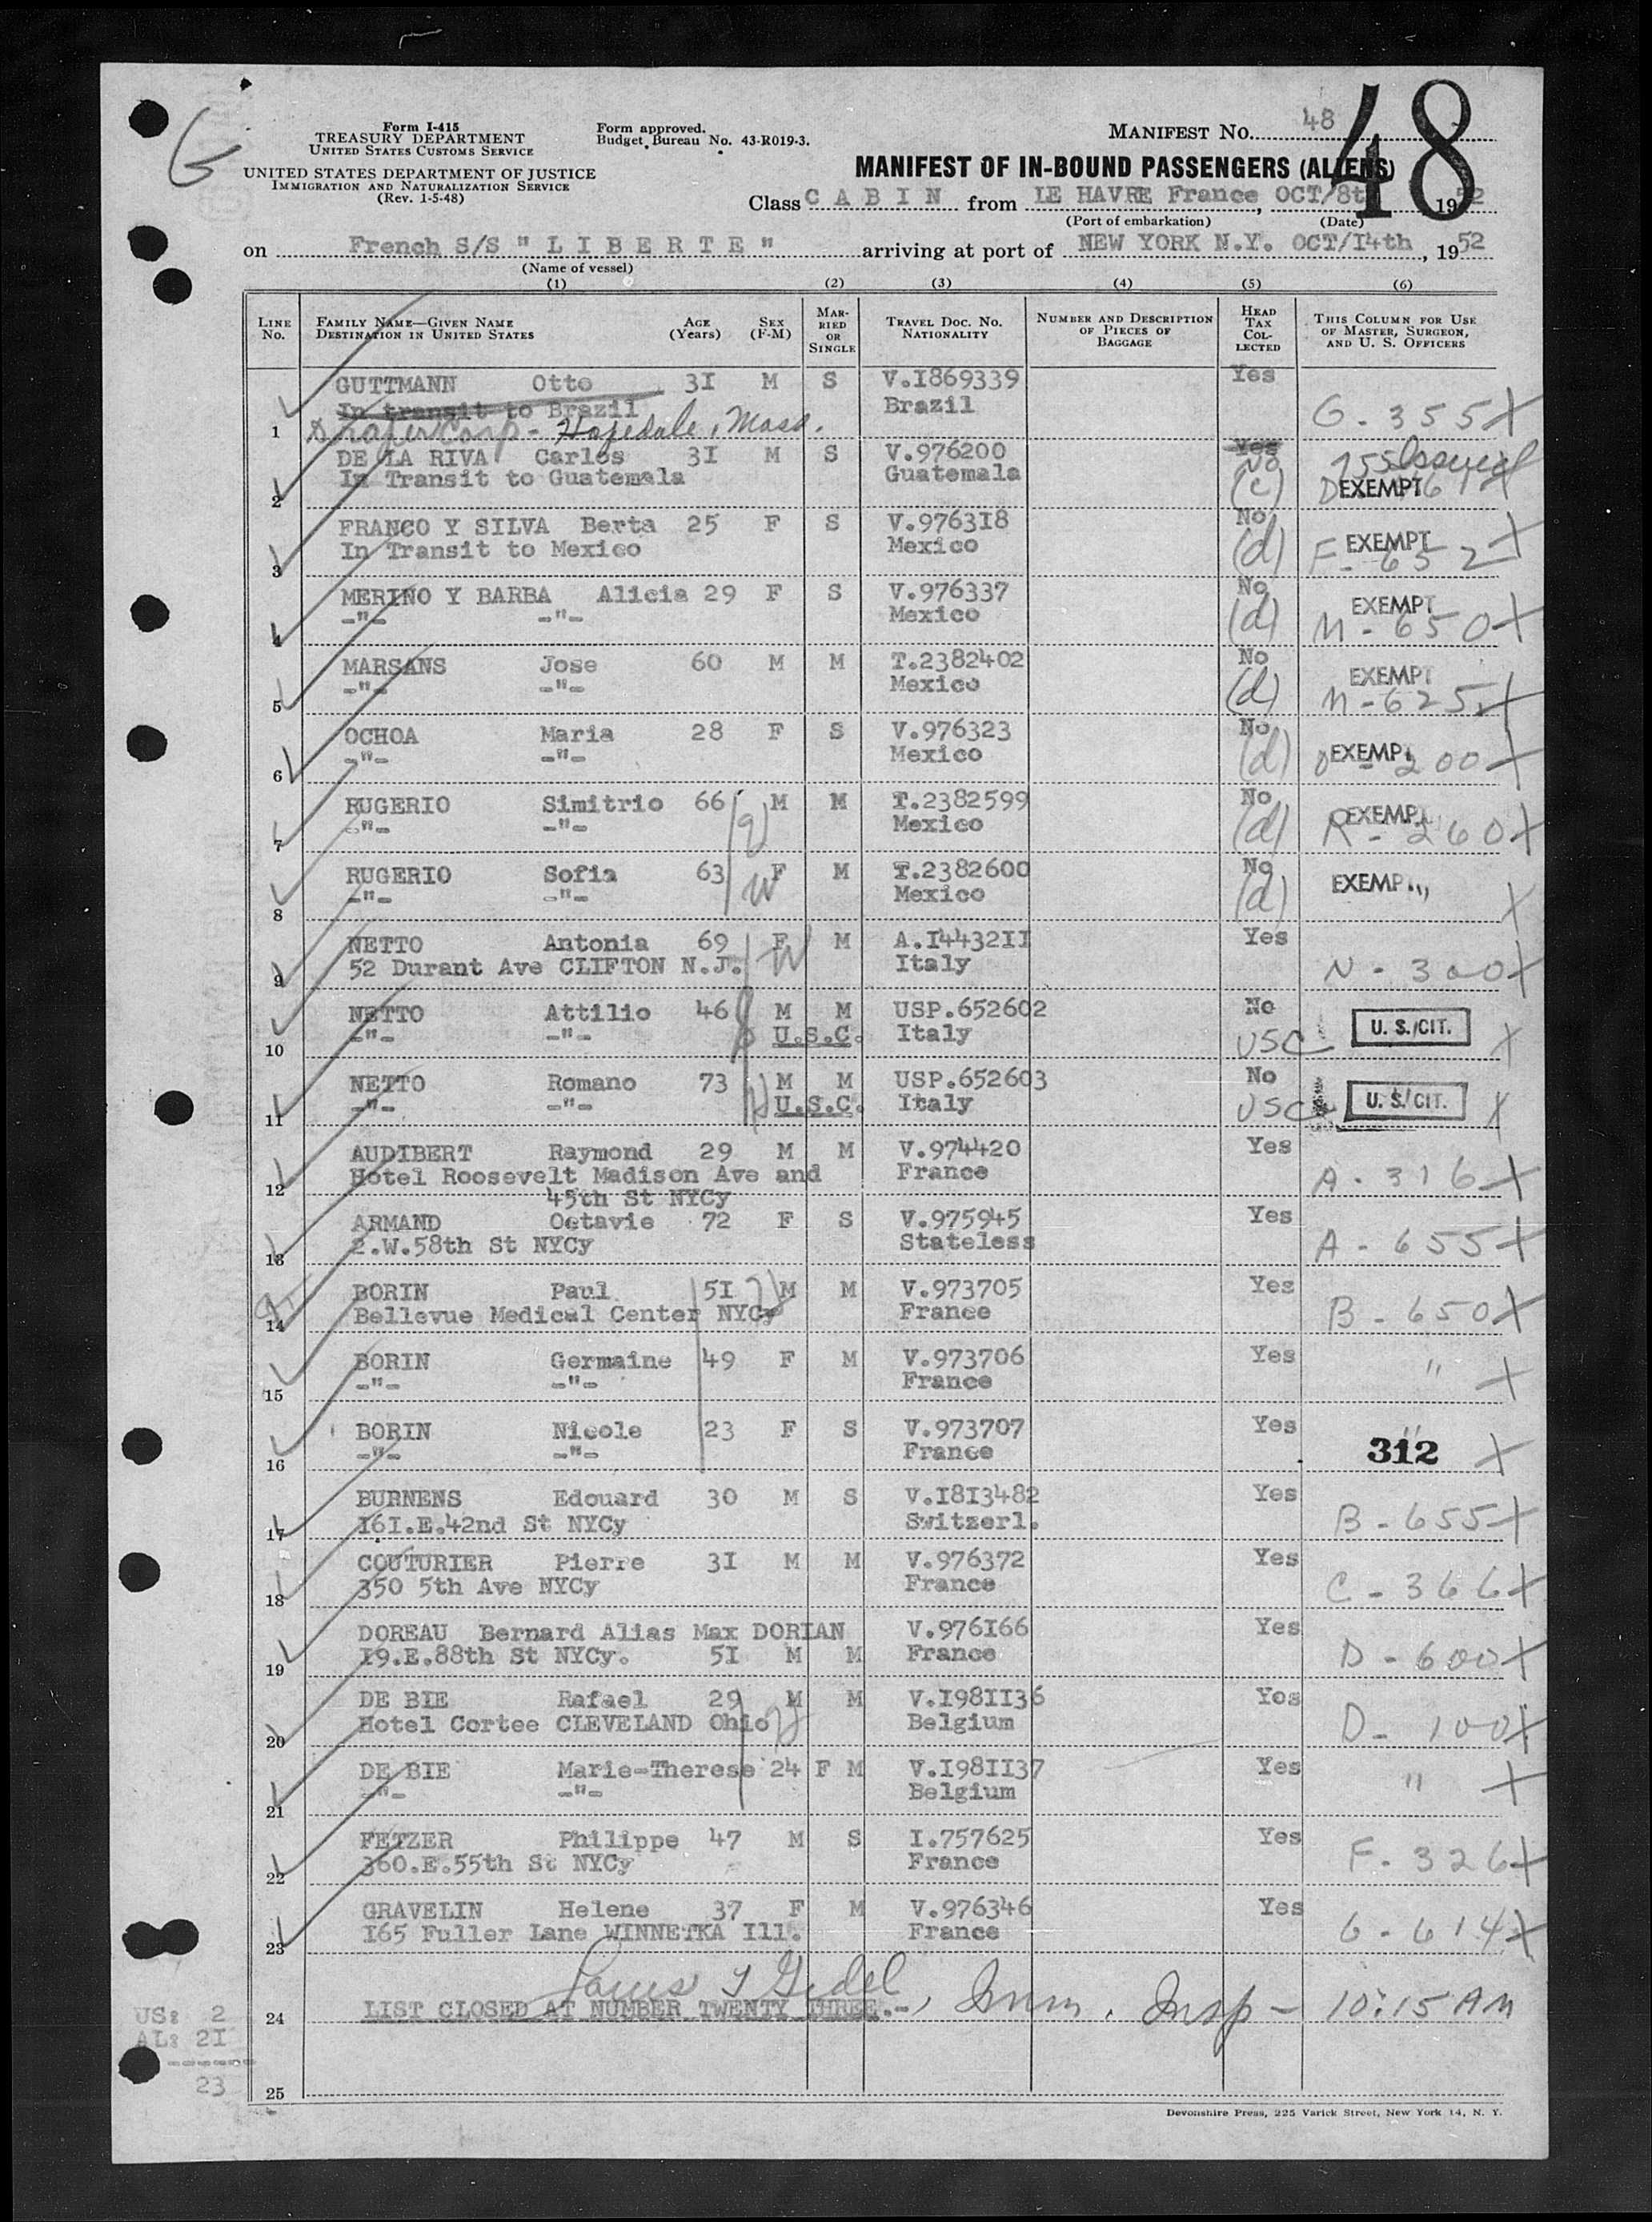 48
Form I-415
TREASURY DEPARTMENT
UNITED STATES CUSTOMS SERVICE
UNITED STATES DEPARTMENT OF JUSTICE
IMMIGRATION AND NATURALIZATION SERVICE
(Rev. 1-5-48)
Form approved.
Budget Bureau No. 43-R019-3.
MANIFEST No. 48
MANIFEST OF IN-BOUND PASSENGERS (ALIENS)
Class C A B I N from LE HAVRE France, OCT/8t 1952
(Port of embarkation) (Date)
on French S/S " L I B E R T E " arriving at port of NEW YORK N.Y. OCT/I4th, 1952
(Name of vessel)
(1) (2) (3) (4) (5) (6)
LINE No. FAMILY NAME—GIVEN NAME DESTINATION IN UNITED STATES AGE (Years) SEX (F-M) MARRIED OR SINGLE TRAVEL DOC. NO. NATIONALITY NUMBER AND DESCRIPTION OF PIECES OF BAGGAGE HEAD TAX COLLECTED THIS COLUMN FOR USE OF MASTER, SURGEON, AND U. S. OFFICERS
GUTTMANN Otto 3I M S V.I869339 Yes
In transit to Brazil Brazil G-355X
1 Draper Corp - Hopedale, Mass.
DE LA RIVA Carlos 3I M S V.976200 Yes No 255 Issued
2 In Transit to Guatemala Guatemala (c) EXEMPT
FRANCO Y SILVA Berta 25 F S V.9763I8 No EXEMPT
3 In Transit to Mexico Mexico (d) F-652 X
MERINO Y BARBA Alicia 29 F S V.976337 No EXEMPT
4 -"- -"- Mexico (d) M-650X
MARSANS Jose 60 M M T.2382402 No EXEMPT
5 -"- -"- Mexico (d) M-625X
OCHOA Maria 28 F S V.976323 No
6 -"- -"- Mexico (d) EXEMP O-200X
RUGERIO Simitrio 66 M M T.2382599 No
7 -"- -"- Mexico (d) EXEMPT R-260X
RUGERIO Sofia 63 W F M T.2382600 No EXEMP
8 -"- -"- Mexico (d) X
NETTO Antonia 69 F W M A.I4432II Yes
9 52 Durant Ave CLIFTON N.J. Italy N-300X
NETTO Attilio 46 M M USP.652602 No U. S. CIT.
10 -"- -"- U.S.C. Italy USC X
NETTO Romano 73 M M USP.652603 No U. S. CIT.
11 -"- -"- U.S.C. Italy USC X
AUDIBERT Raymond 29 M M V.974420 Yes
12 Hotel Roosevelt Madison Ave and France A-316X
45th St NYCy
ARMAND Octavie 72 F S V.975945 Yes
13 2.W.58th St NYCy Stateless A-655X
BORIN Paul 5I M M V.973705 Yes
14 Bellevue Medical Center NYCy France B-650X
BORIN Germaine 49 F M V.973706 Yes
15 -"- -"- France " X
BORIN Nicole 23 F S V.973707 Yes "
16 -"- -"- France 312 X
BURNENS Edouard 30 M S V.I8I3482 Yes
17 I6I.E.42nd St NYCy Switzerl. B-655X
COUTURIER Pierre 3I M M V.976372 Yes
18 350 5th Ave NYCy France C-366X
DOREAU Bernard Alias Max DORIAN V.976I66 Yes
19 I9.E.88th St NYCy. 5I M M France D-600X
DE BIE Rafael 29 M M V.I98II36 Yes
20 Hotel Cortee CLEVELAND Ohio Belgium D-100X
DE BIE Marie-Therese 24 F M V.I98II37 Yes
21 -"- -"- Belgium " X
FETZER Philippe 47 M S I.757625 Yes
22 360.E.55th St NYCy France F-326X
GRAVELIN Helene 37 F M V.976346 Yes
23 I65 Fuller Lane WINNETKA Ill. France G-614X
24 LIST CLOSED AT NUMBER TWENTY THREE.-, Imm. Insp - 10:15 AM
US: 2
AL: 2I
23
25
Devonshire Press, 225 Varick Street, New York 14, N. Y.